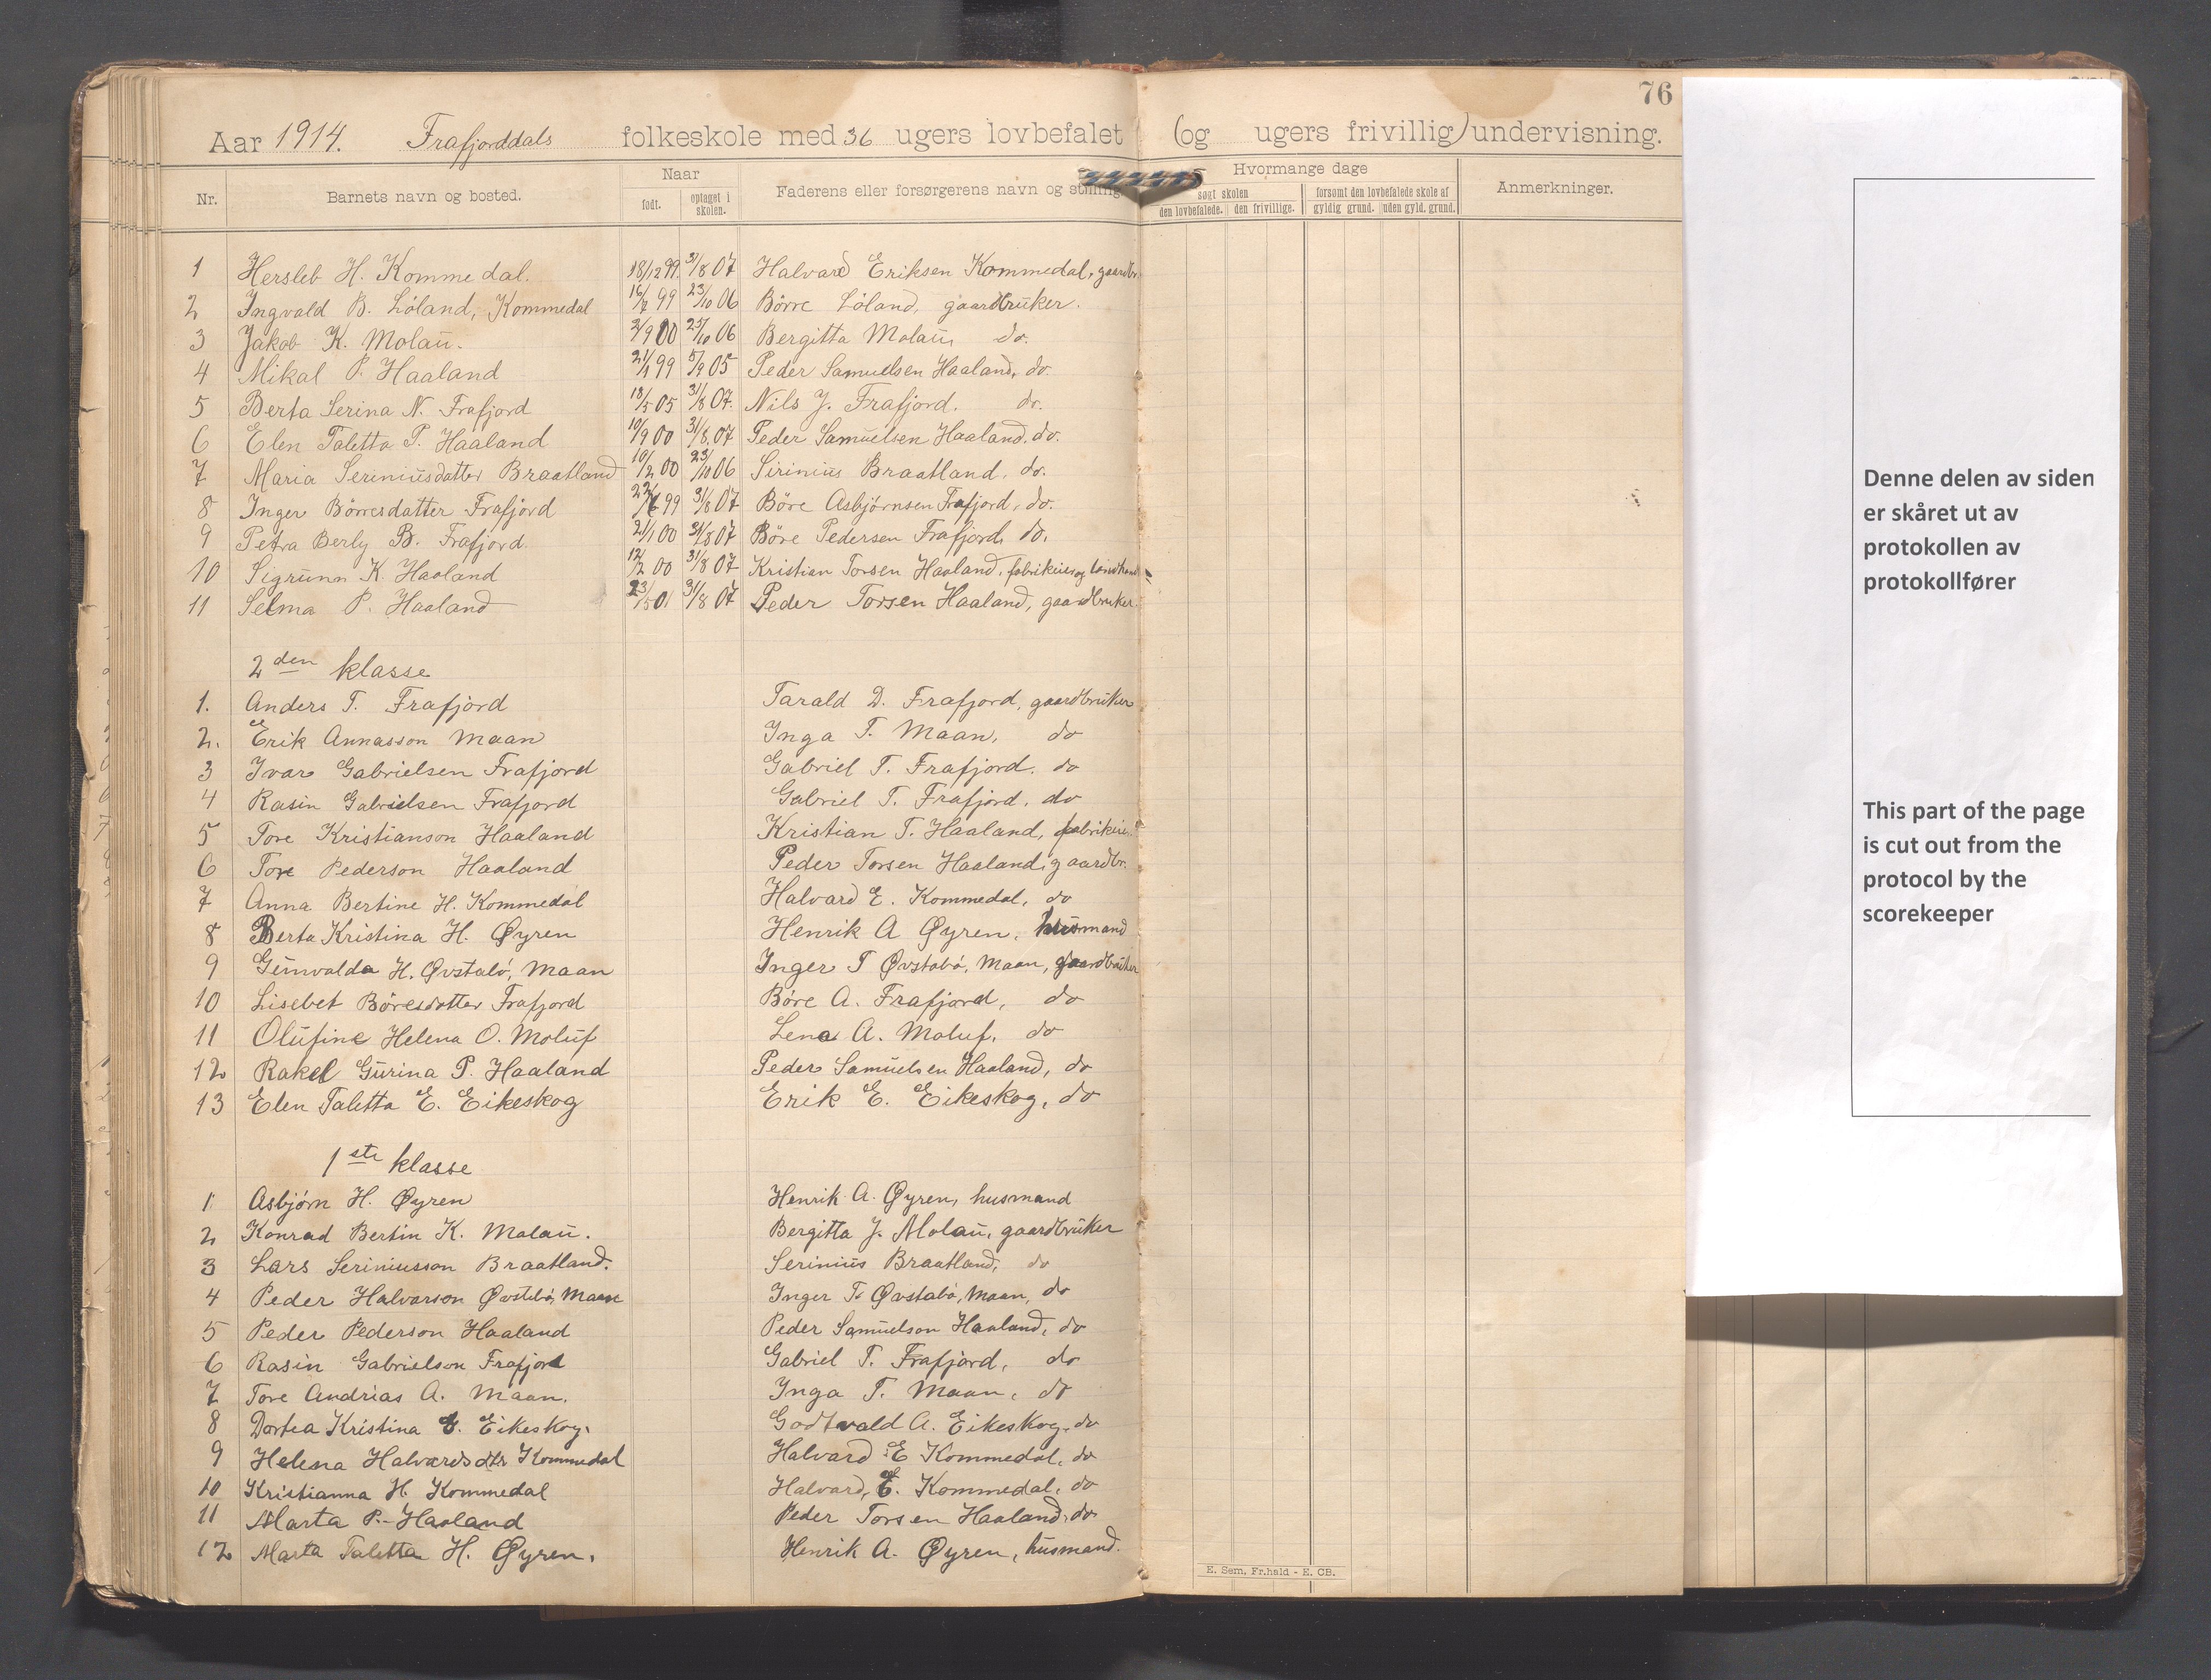 76
Aar 1914. Frafjorddals folkeskole med 36 ugers lovbefalet (og ugers frivillig) undervisning.
Nr. Barnets navn og bosted. Naar født. optaget i skolen. Faderens eller forsørgerens navn og stilling Hvormange dage søgt skolen den lovbefalede. den frivillige. forsømt den lovbefalede skole af gyldig grund. uden gyld. grund. Anmerkninger.
1 Hersleb H. Kommedal. 18/12 99 31/8 07 Halvard Eriksen Kommedal, gaardbr.
2 Ingvald B. Løland, Kommedal 16/7 99 23/10 06 Börre Löland, gaardbruker.
3 Jakob K. Molaü. 2/9 00 25/10 06 Bergitta Molaü, do.
4 Mikal P. Haaland 21/1 99 5/9 05 Peder Samuelsen Haaland, do.
5 Berta Serina N. Frafjord 18/5 05 31/8 07. Nils J. Frafjord. do.
6 Elen Taletta P. Haaland 10/9 00 31/8 07 Peder Samuelsen Haaland. do.
7 Maria Sereniusdatter Braatland 10/2 00 23/10 06 Sirinius Braatland. do.
8 Inger Börresdatter Frafjord 22/6 99 31/8 07 Böre Asbjørnsen Frafjord, do.
9 Petra Berly B. Frafjord. 21/1 00 31/8 07 Böre Pedersen Frafjord, do.
10 Sigruna K. Haaland 12/2 00 31/8 07 Kristian Torsen Haaland, fabrikeier og landhand
11 Selma P. Haaland 23/5 01 31/8 07 Peder Torsen Haaland, gaardbruker.
2den klasse
1. Anders T. Frafjord Tarald D. Frafjord, gaardbruker
2. Erik Annasson Maan Inga T. Maan, do
3 Ivar Gabrielsen Frafjord Gabriel T. Frafjord. do
4 Rasin Gabrielsen Frafjord Gabriel T. Frafjord, do
5 Tore Kristianson Haaland Kristian T. Haaland, fabrikeier
6 Tore Pederson Haaland Peder Torsen Haaland, gaardbr.
7 Anna Bertine H. Kommedal Halvard E. Kommedal, do
8 Berta Kristina H. Øyren Henrik A Øyren, husmand
9 Gunvalda H. Øvstabö, Maan Inger T Øvstabö, Maan, gaardbruker
10 Lisebet Böresdotter Frafjord Böre A. Frafjord, do
11 Olufine Helena O. Moluf Lena A. Moluf, do
12 Rakel Gurina P. Haaland Peder Samuelsen Haaland, do
13 Elen Taletta E. Eikeskog Erik E. Eikeskog, do
1ste klasse
1 Asbjørn H. Øyren Henrik A. Øyren, husmand
2 Konrad Bertin K. Molaü. Bergitta J. Molaü, gaardbruker
3 Lars Seriniusson Braatland. Serinius Braatland, do
4 Peder Halvarson Øvstebö, Maan Inger T. Øvstabö, Maan, do
5 Peder Pederson Haaland Peder Samuelson Haaland, do
6 Rasin Gabrielson Frafjord Gabriel T. Frafjord, do
7 Tore Andrias A. Maan. Inga T. Maan, do
8 Dortea Kristina G. Eikeskog. Godtvald A. Eikeskog, do
9 Helena Halvardsdtr Kommedal Halvard E Kommedal, do
10 Kristianna H. Kommedal Halvard, E. Kommedal, do
11 Marta P. Haaland Peder Torsen Haaland, do.
12 Marta Taletta H. Øyren. Henrik A. Øyren, husmand.
E. Sem, Fr.hald - E. CB.
Denne delen av siden
er skåret ut av
protokollen av
protokollfører
This part of the page
is cut out from the
protocol by the
scorekeeper